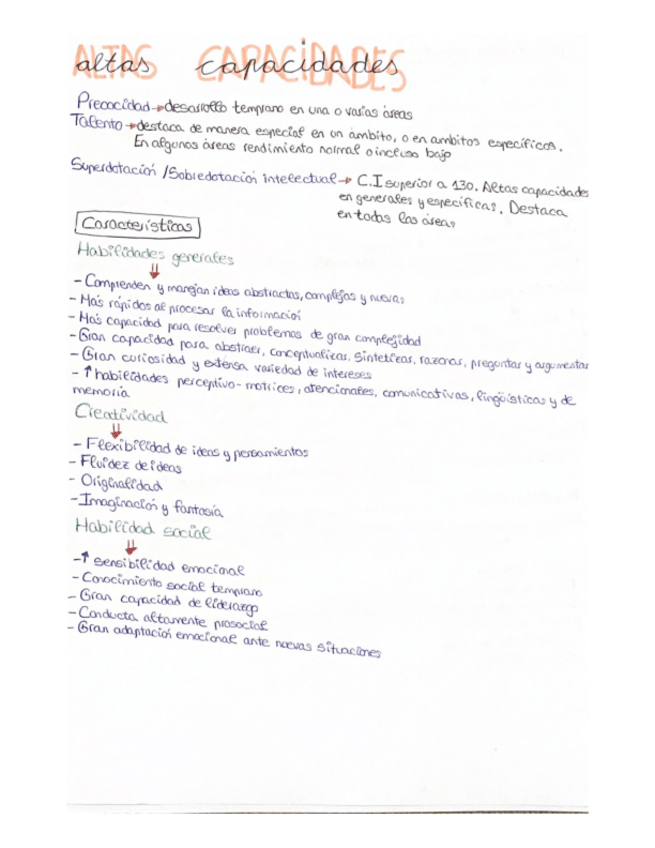 ALTAS CAPACIDADES
altas capacidades
Precocidad → desarrollo temprano en una o varias áreas
Talento → destaca de manera especial en un ámbito, o en ambitos específicos.
En algunas áreas rendimiento normal o incluso bajo
Superdotación / Sobredotación intelectual → C.I superior a 130. Altas capacidades
en generales y específicas. Destaca
en todas las áreas
Características
Habilidades generales
⇓
- Comprenden y manejan ideas abstractas, complejas y nuevas
- Más rápidos al procesar la información
- Más capacidad para resolver problemas de gran complejidad
- Gran capacidad para abstraer, conceptualizar, sintetizar, razonar, preguntar y argumentar
- Gran curiosidad y extensa variedad de intereses
- ↑ habilidades perceptivo-motrices, atencionales, comunicativas, lingüísticas y de
memoria
Creatividad
⇓
- Flexibilidad de ideas y pensamientos
- Fluidez de ideas
- Originalidad
- Imaginación y fantasía
Habilidad social
⇓
- ↑ sensibilidad emocional
- Conocimiento social temprano
- Gran capacidad de liderazgo
- Conducta altamente prosocial
- Gran adaptación emocional ante nuevas situaciones